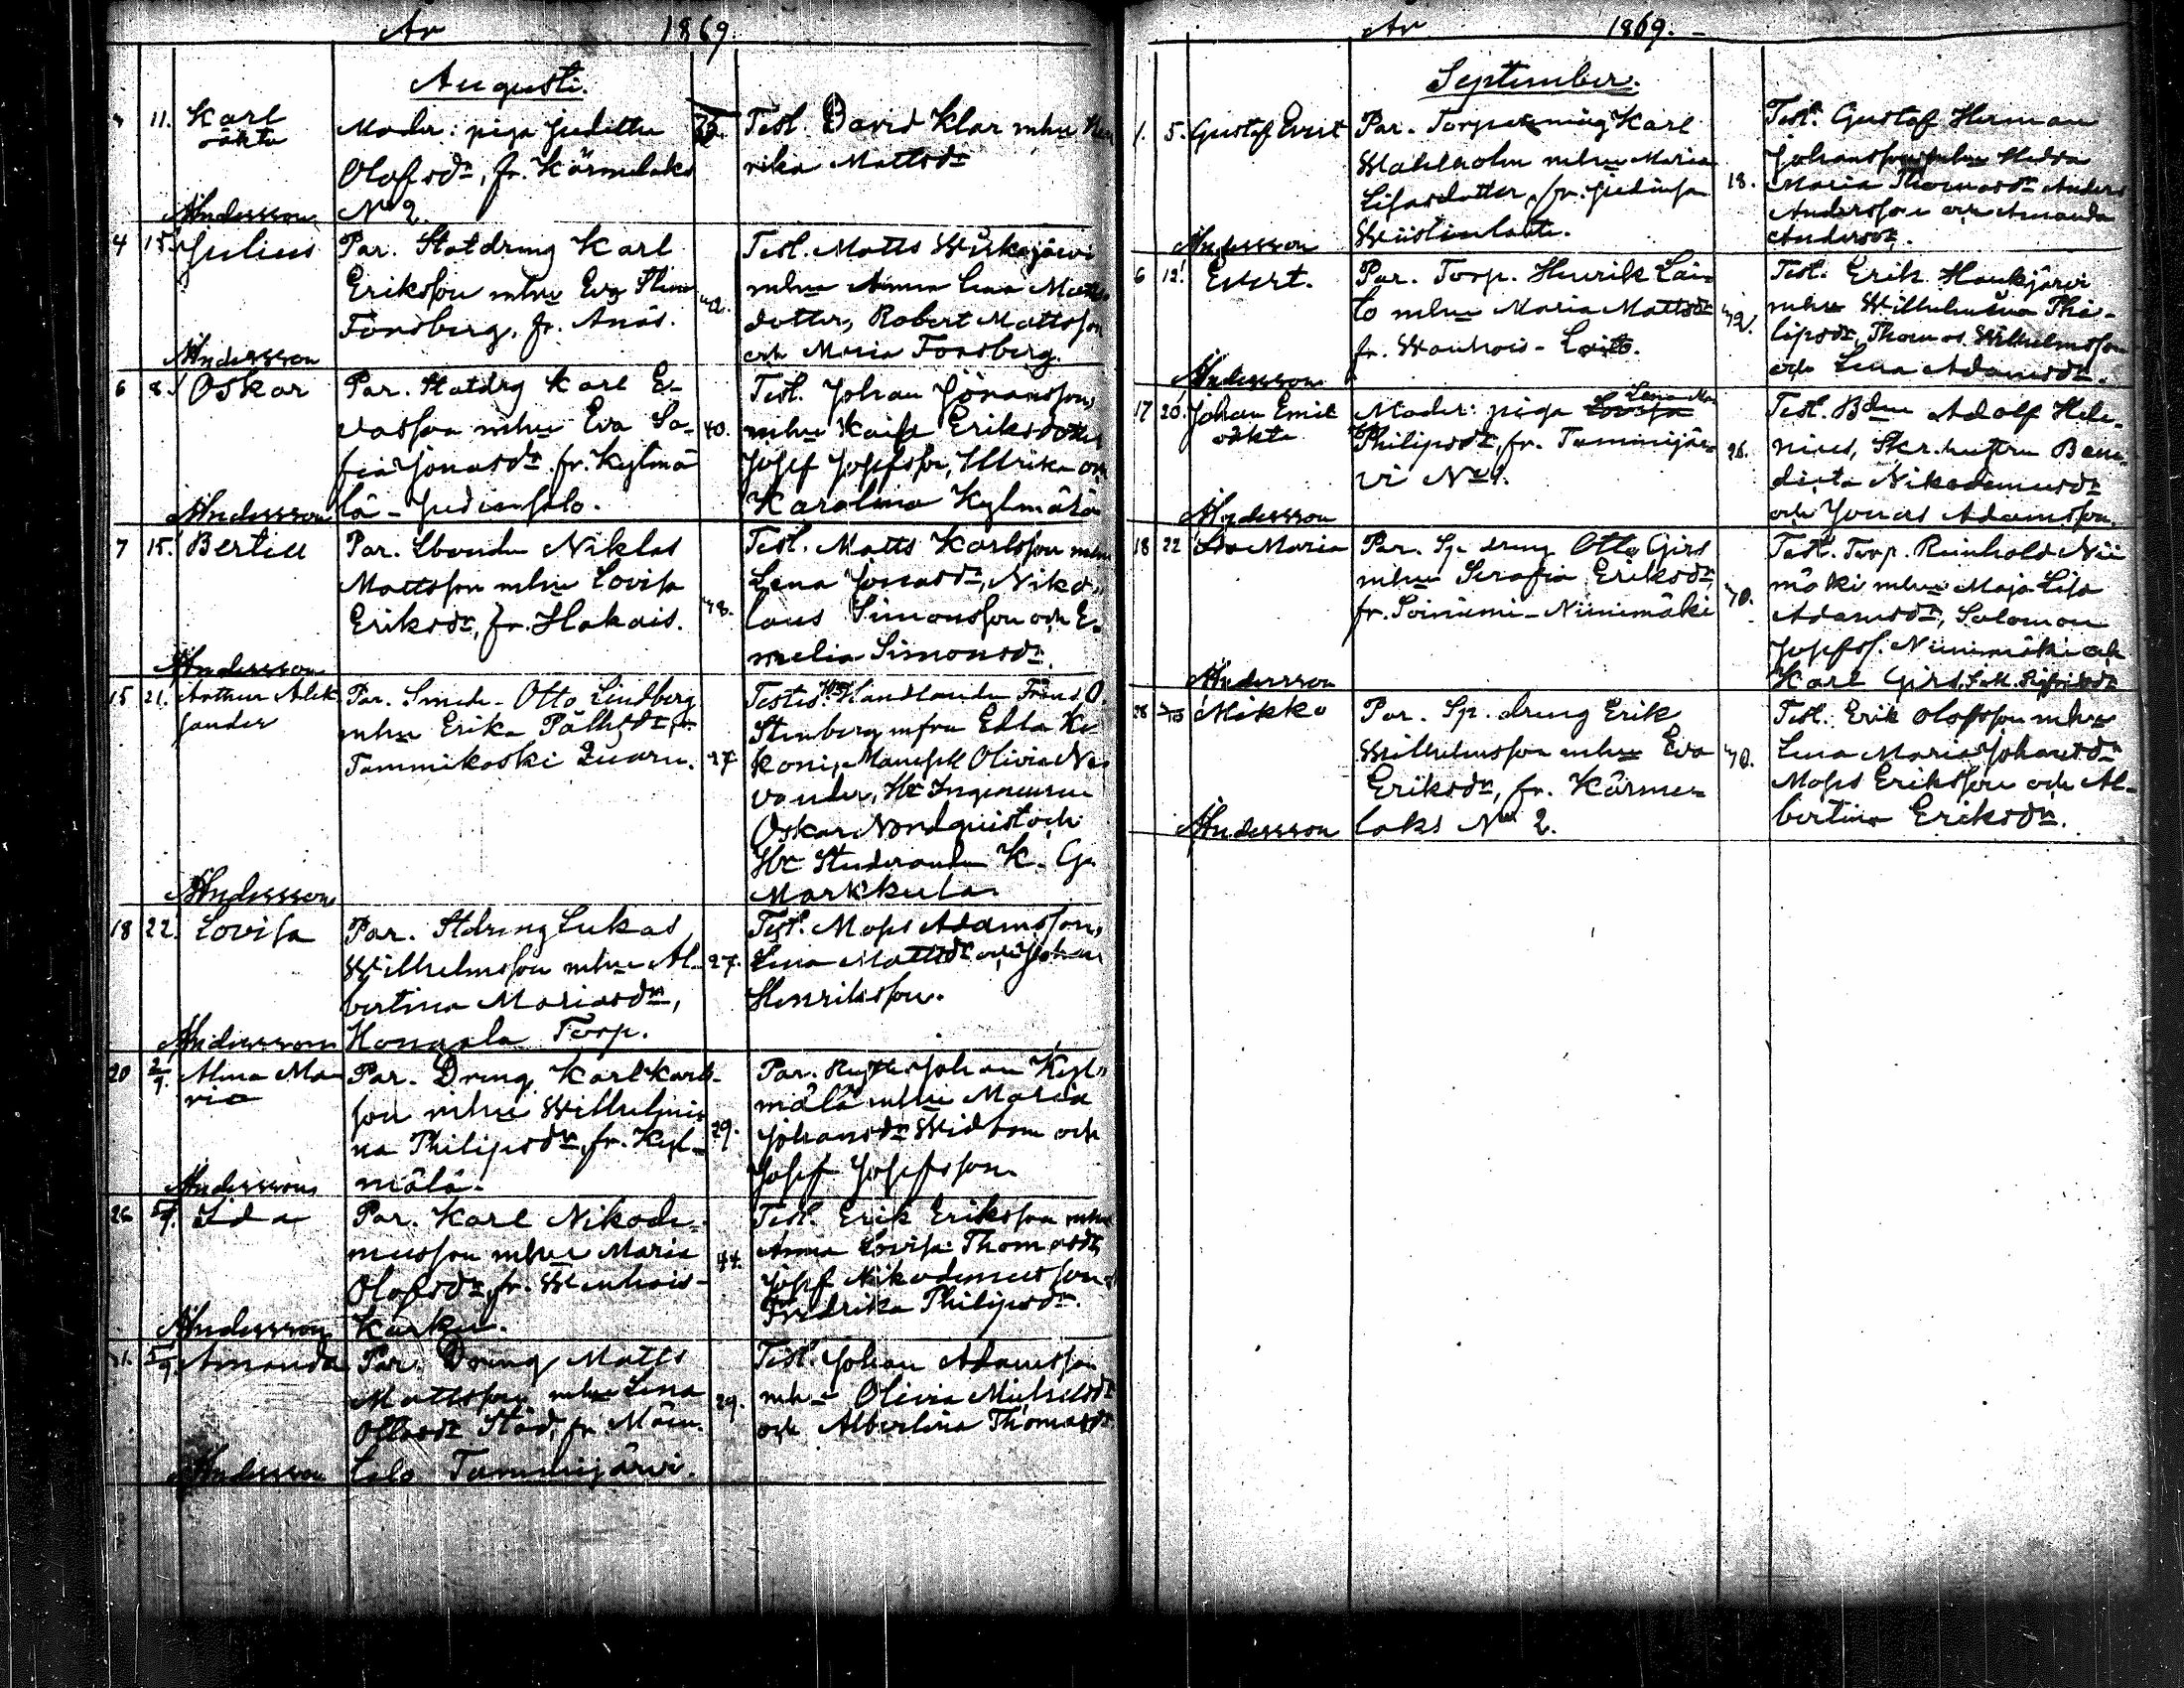 År 1869.
Augusti.
11. Karl
oäkta
Moder: piga Juditha
Olofsdr, fr. Kärmelaks
No 2.
Andersson
Test. David Klar mhu
rika Mattsdr
4 15. Julius
Par. Statdrng Karl
Eriksson mhu Eva Stina
Forsberg, fr. Anäs.
Andersson
42.
Test. Matts
mhu Anna Lena Matts
dotter, Robert Mattsson
och Maria Forsberg.
6 8. Oskar
Par. Statdrg Karl E-
vasson mhu Eva So-
fia Jonasdr fr. Kylmä
lä - Judinsalo.
Andersson
40.
Test. Johan Jöransson,
mhu Kaisa Eriksdotter
Josef Josefsson, Ulrika och
Karolina Kylmälä
7 15. Bertill
Par. Bonden Niklas
Mattsson mhu Lovisa
Eriksdr, fr. Hakais.
Andersson
38.
Test. Matts Karlsson mhu
Lena Jonasdr, Niko-
laus Simonsson och E-
melia Simonsdr.
15 21. Arthur Alek
sander
Par. Smeden Otto Lindberg
mhu Erika Pålsdr fr.
Tammikoski Quarn.
Andersson
27
Testes: Hr Handlanden Frans O.
Stenberg mfru Edla Ke
koni, Mamsell Olivia Ne
vander, Hr Ingenieuren
Oskar Nordquist och
Hr Studeranden K. G.
Markkula.
18 22. Lovisa
Par. Stdrng Lukas
Wilhelmsson mhu Al-
bertina Mariasdr,
Torp.
Andersson
27.
Test. Moses Adamsson,
Lena Mattsdr och Johan
Henriksson.
20 2/9. Alma Ma
ria
Par. Dreng Karl Karls-
son mhu Wilhelmi
na Philipsdr, fr. Kyl-
mälä.
Andersson
29.
Par. Johan Kyl-
mälä mhu Maria
Johansdr Widbom och
Josef Josefsson
26 5/9. Ida
Par. Karl Nikode-
musson mhu Maria
Olofsdr, fr. Wanhais-
Karku.
Andersson
44.
Test. Erik Eriksson mhu
Anna Lovisa Thomasdr,
Josef Nikodemusson
Fredrika Philipsdr.
31. 5/9. Amanda
Par. Dreng Matts
Mattsson mhu Lena
Ottosdr Stöd, fr. Män-
tilä Tammijärvi.
Andersson
29.
Test. Johan Adamsson
mhu Olivia Michelsdr
och Albertina Thomasdr
År 1869.
September.
1. 5. Gustaf Evert
Par. Torpare måg Karl
Wahlholm mhu Maria
Lisasdotter, fr. Judinsa
Andersson
18.
Test. Gustaf Herman
Johansson mhu Hedda
Maria Thomasdr Anders
Andersson och Amanda
Andersdr.
6 12. Evert.
Par. Torp. Henrik Lai-
to mhu Maria Mattsdr
fr. Wanhois - Laito.
Andersson
42.
Test. Erik Haukjärvi
mhu Wilhelmina Phi-
lipsdr, Thomas Wilhelmsson
och Lena Adamsdr.
17 20. Johan Emil
oäkta
Moder: piga Lovisa Lena Ma
Philipsdr, fr. Tammijär-
vi No 1.
Andersson
26.
Test. Bdn Adolf Hele-
nius, Skr. hustru Bene-
dicta Nikodemusdr
och Jonas Adamsson.
18 22 Ida Maria
Par. Sp. dreng Otto Girs
mhu Serafia Eriksdr,
fr. Soiniemi - Niinimäki
Andersson
40.
Test. Torp. Reinhold Nii
mäki mhu Maja Lisa
Adamsdr, Salomon
Josefss. Niinimäki och
Karl Girs
28 3/10 Mikko
Par. Sp. dreng Erik
Wilhelmsson mhu Eva
Eriksdr, fr. Kärme-
laks No 2.
Andersson
40.
Test. Erik Olofsson mhu
Lena Maria Johansdr
Moses Eriksson och Al-
bertina Eriksdr.